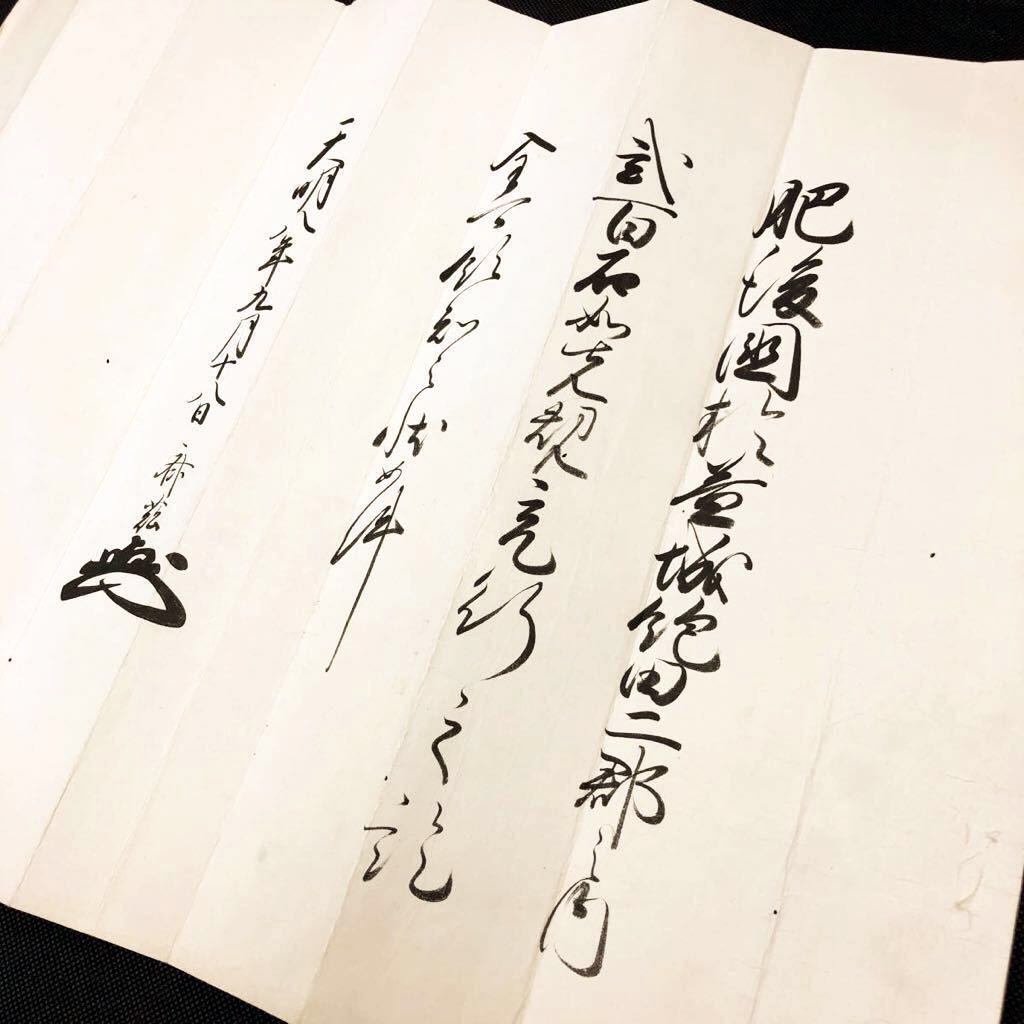 肥後國於益城飽田二郡之内
弐百石如先規充行之訖
全可領知之状如件
天明八年九月十八日 齊茲